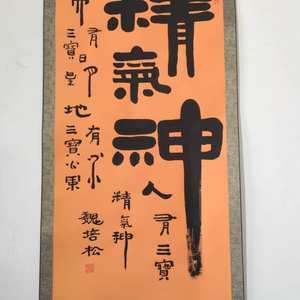 精氣神
人有三寶
精氣神
地有三寶水火風
天有三寶日月星
魏培松